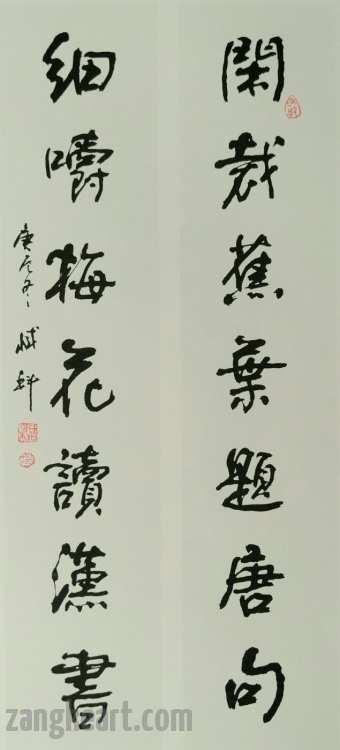 閑裁蕉葉題唐句
細嚼梅花讀漢書
庚辰冬
zangheart.com